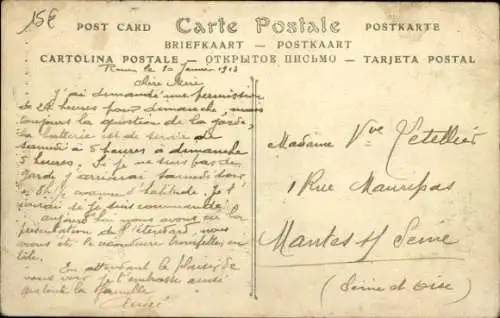 15€
POST CARD Carte Postale POSTKARTE
BRIEFKAART — POSTKAART
CARTOLINA POSTALE — ОТКРЫТОЕ ПИСЬМО — TARJETA POSTAL
le 10 Janvier 1913
Chère Mère
J'ai demandé une permission
de 24 heures pour dimanche, mais
toujours la question de la garde,
la batterie est de service de
samedi à 5 heures à dimanche
5 heures. Si je ne suis pas de
garde j'arriverai samedi soir
comme d'habitude. Je t'
si je suis commandé.
aujourd'hui nous avons eu la
présentation de l'étendard, nous
avons été le trompettes en
tête.
En attendant le plaisir de
vous voir je t'embrasse ainsi
que toute la famille
André
Madame Vve Letellier
1 Rue Maurepas
Mantes s/ Seine
(Seine et Oise)